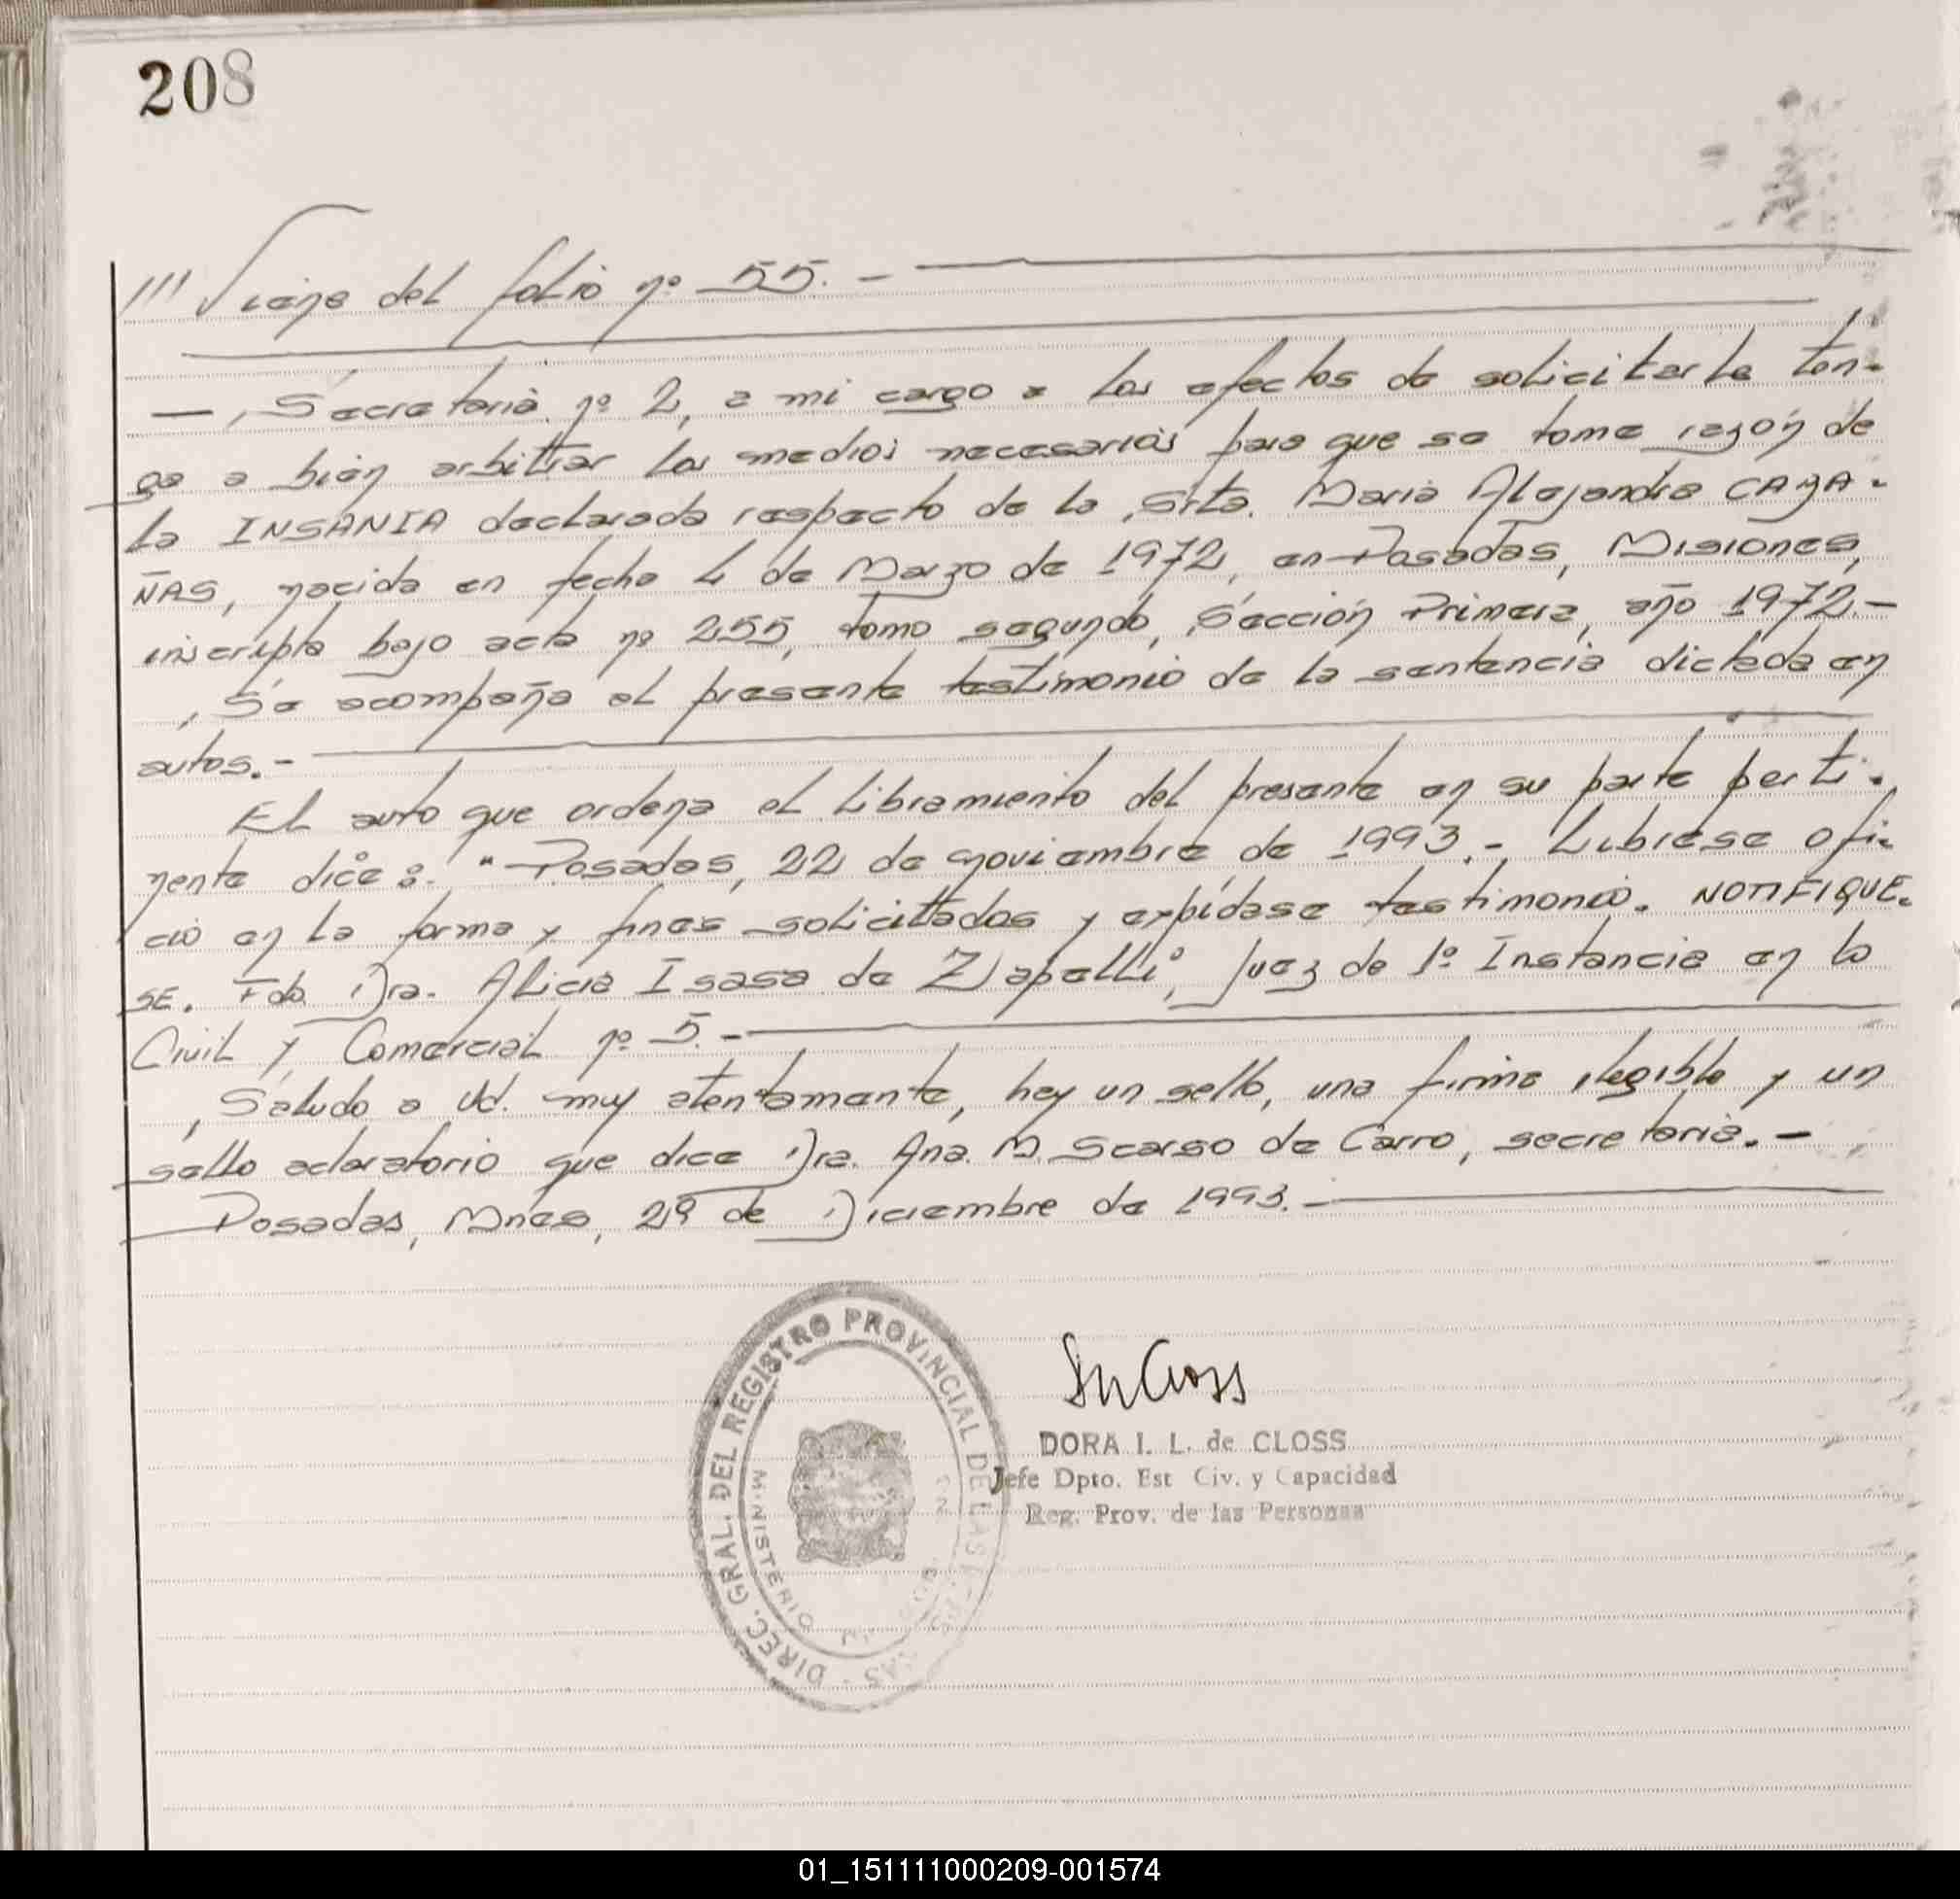 208
/// Viene del folio nº 55. -
Secretaria nº 2, a mi cargo a los efectos de solicitarle ten-
ga a bien arbitrar los medios necesarios para que se tome razón de
la INSANIA declarada respecto de la Srta. Maria Alejandra CAZA-
ÑAS, nacida en fecha 4 de Marzo de 1972, en Posadas, Misiones,
inscripta bajo acta nº 255, tomo segundo, Sección Primera, año 1972.-
Se acompaña al presente testimonio de la sentencia dictada en
autos.-
El auto que ordena el libramiento del presente en su parte perti-
nente dice: "Posadas, 22 de noviembre de 1993.- Librese ofi-
cio en la forma y fines solicitados y expídase testimonio. NOTIFIQUE-
SE. Fdo Dra. Alicia Isasa de Zapelli, Juez de 1º Instancia en lo
Civil y Comercial nº 5.-
Saludo a Ud. muy atentamente, hay un sello, una firma ilegible y un
sello aclaratorio que dice Dra. Ana. M. Scarso de Carro, secretaria.-
Posadas, Mnes, 29 de Diciembre de 1993.-
DIREC. GRAL. DEL REGISTRO PROVINCIAL DE LAS
MINISTERIO
DORA I. L. de CLOSS
Jefe Dpto. Est Civ. y Capacidad
Reg. Prov. de las Personas
01_151111000209-001574